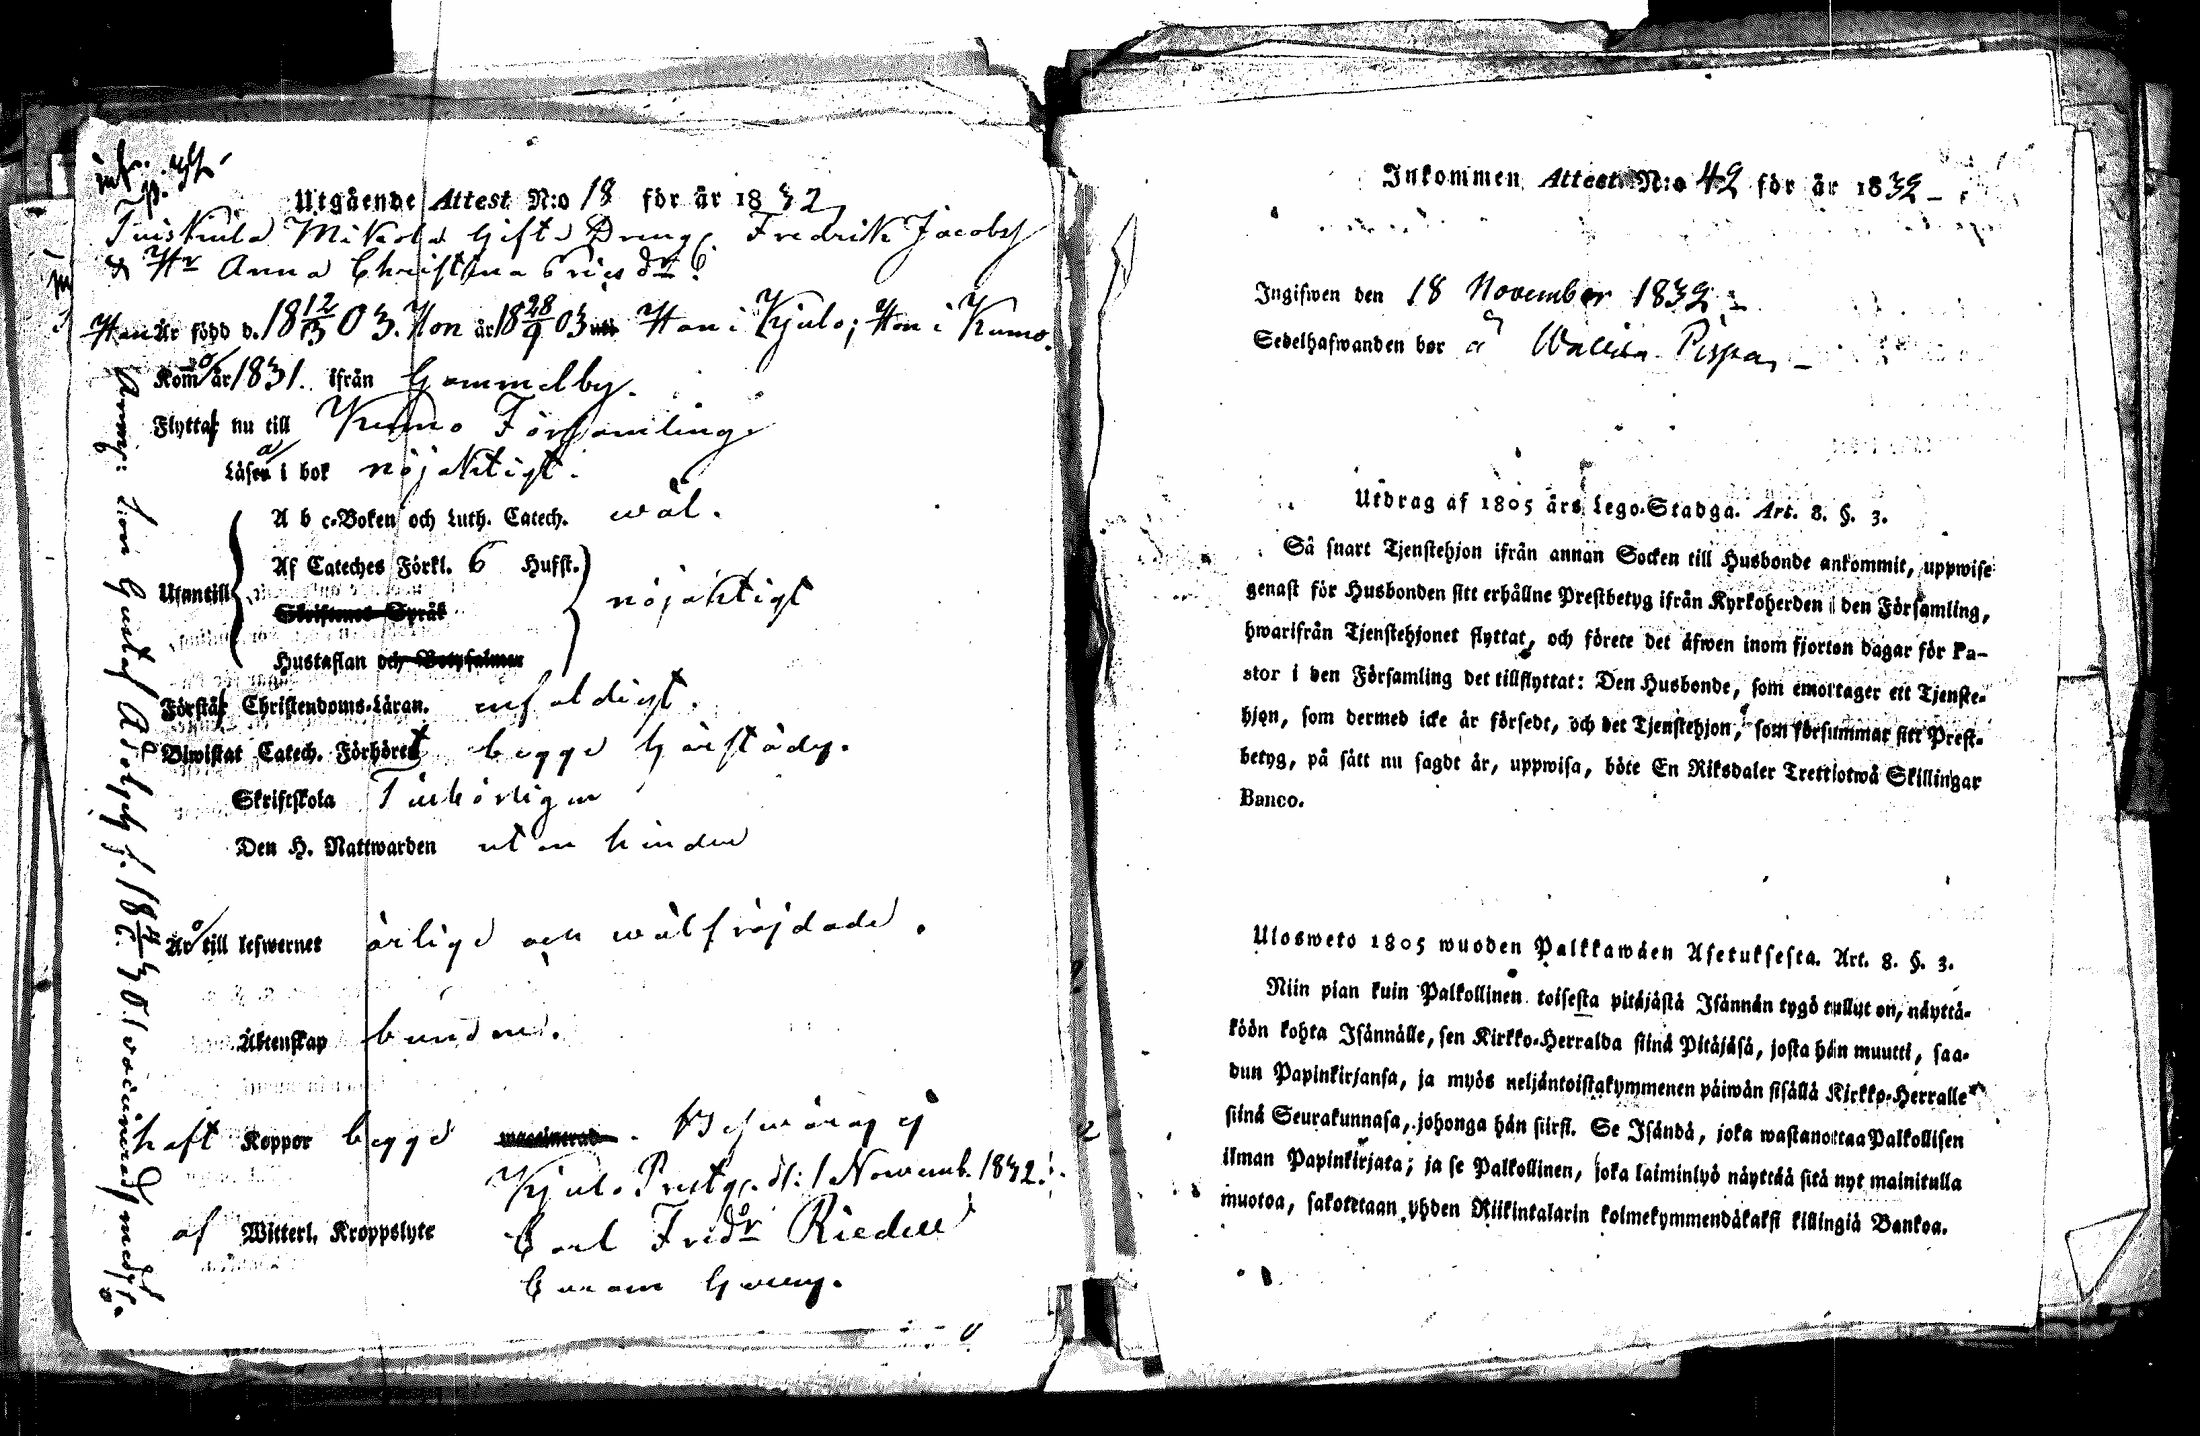 inf. p. 42
Utgående Attest N:o 18 för år 1832
Tuiskula Mikola Gifte Dreng. Fredrik Jacobss
& H:r Anna Christina Ericsd:r
Han Är född d. 18 12/3 03. Hon år 18 28/9 03 Han i Kjulo; Hon i Kumo.
Komo år 1831. ifrån Gammelby.
Flytta nu till Kumo Församling
Läsa i bok nöjaktigt.
A b c-Boken och Luth. Catech. wäl.
Af Cateches Förkl. 6 Hufst.
Utantill nöjaktigt
Skriftenes Språk
Hustaflan och Botpsalmer
Förstå Christendoms-Läran. enfaldigt.
Biwistat Catech. Förhöret begge
Skriftskola
Den H. Nattwarden utan hinder
Äro till lefwernet ärlige och wälfräjdade.
Äktenskap bundne.
haft Koppor begge waccinerad.
Kjulo Prestg. d: 1 Novemb. 1832.
af Witterl. Kroppslyte
Carl Fredr Riedell
Anmg: Son Gustaf Adolph f. 18
Inkommen Attest N:o 42 för år 1832
Ingifwen den 18 November 1832
Sedelhafwanden bor å Pispa
Utdrag af 1805 års Lego-Stadga. Art. 8. §. 3.
Så snart Tjenstehjon ifrån annan Socken till Husbonde ankommit, uppwise
genast för Husbonden sitt erhållne Prestbetyg ifrån Kyrkoherden i den Församling,
hwarifrån Tjenstehjonet flyttat, och förete det äfwen inom fjorton dagar för Pa-
stor i den Församling det tillflyttat: Den Husbonde, som emottager ett Tjenste-
hjon, som dermed icke är försedt, och det Tjenstehjon, som försummar sitt Prest-
betyg, på sätt nu sagdt är, uppwisa, böte En Riksdaler Trettiotwå Skillingar
Banco.
Ulosweto 1805 wuoden Palkkawäen Asetuksesta. Art. 8. §. 3.
Niin pian kuin Palkollinen toisesta pitäjästä Isännän tygö tullut on, näyttä-
köön kohta Isännälle, sen Kirkko-Herralda siinä Pitäjäsä, josta hän muutti, saa-
dun Papinkirjansa, ja myös neljäntoistakymmenen päiwän sisällä Kirkko-Herralle
siinä Seurakunnasa, johonga hän siirsi. Se Isändä, joka wastanottaa Palkollisen
ilman Papinkirjata; ja se Palkollinen, joka laiminlyö näyttää sitä nyt mainitulla
muotoa, sakotetaan yhden Riikintalarin kolmekymmendäkaksi killingiä Bankoa.